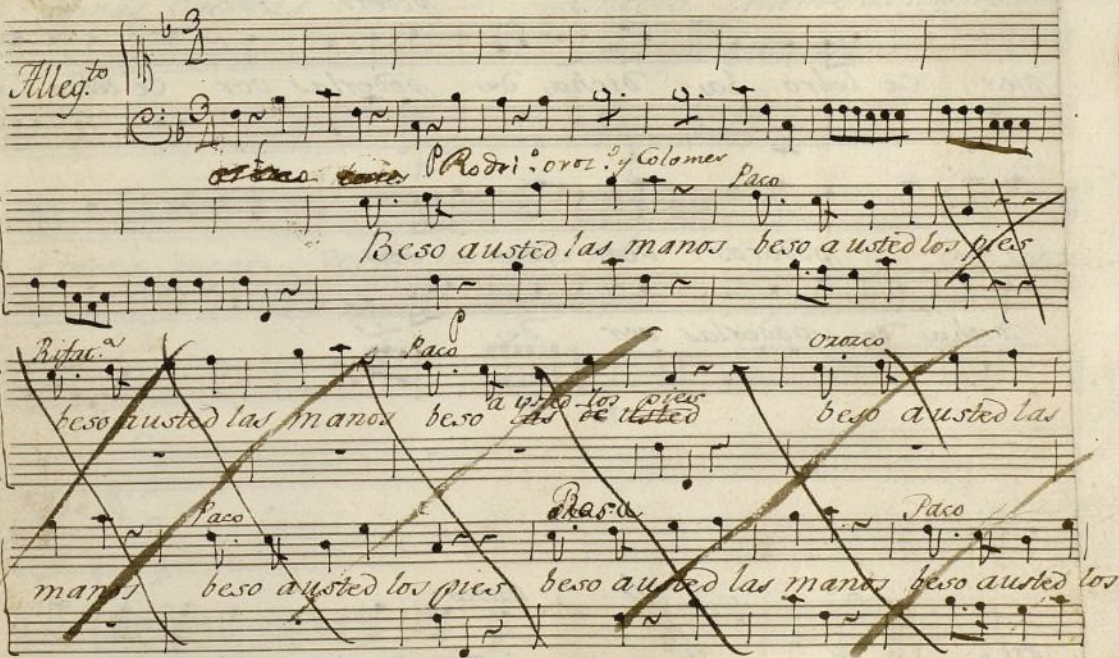 Alleg.to
P Rodri.o oroz.o y Colomer Paco
Beso a usted las manos beso a usted los pies
Paco Orozco
a usted los pies
beso a usted las manos beso las de usted beso a usted las
Paco Rosa Paco
manos beso a usted los pies beso a usted las manos beso a usted los